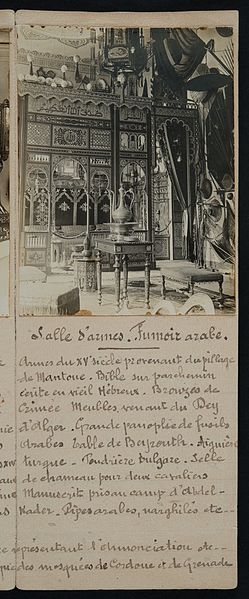 Salle d'armes. Fumoir arabe.
Armes du XVe siècle provenant du pillage
de Mantoue. Bible sur parchemin
écrite en vieil Hébreux. Bronzes de
Crimée Meubles venant du Dey
d'Alger. Grande panoplie de fusils
Arabes Table de Beyrouth. Aiguière
turque. Poudrière Bulgare. Selle
de chameau pour deux cavaliers
Manuscrit pris au camp d'Abdel-
Kader. Pipes arabes, narghilés etc--
représentant l'annonciation etc--
des mosquées de Cordoue et de Grenade